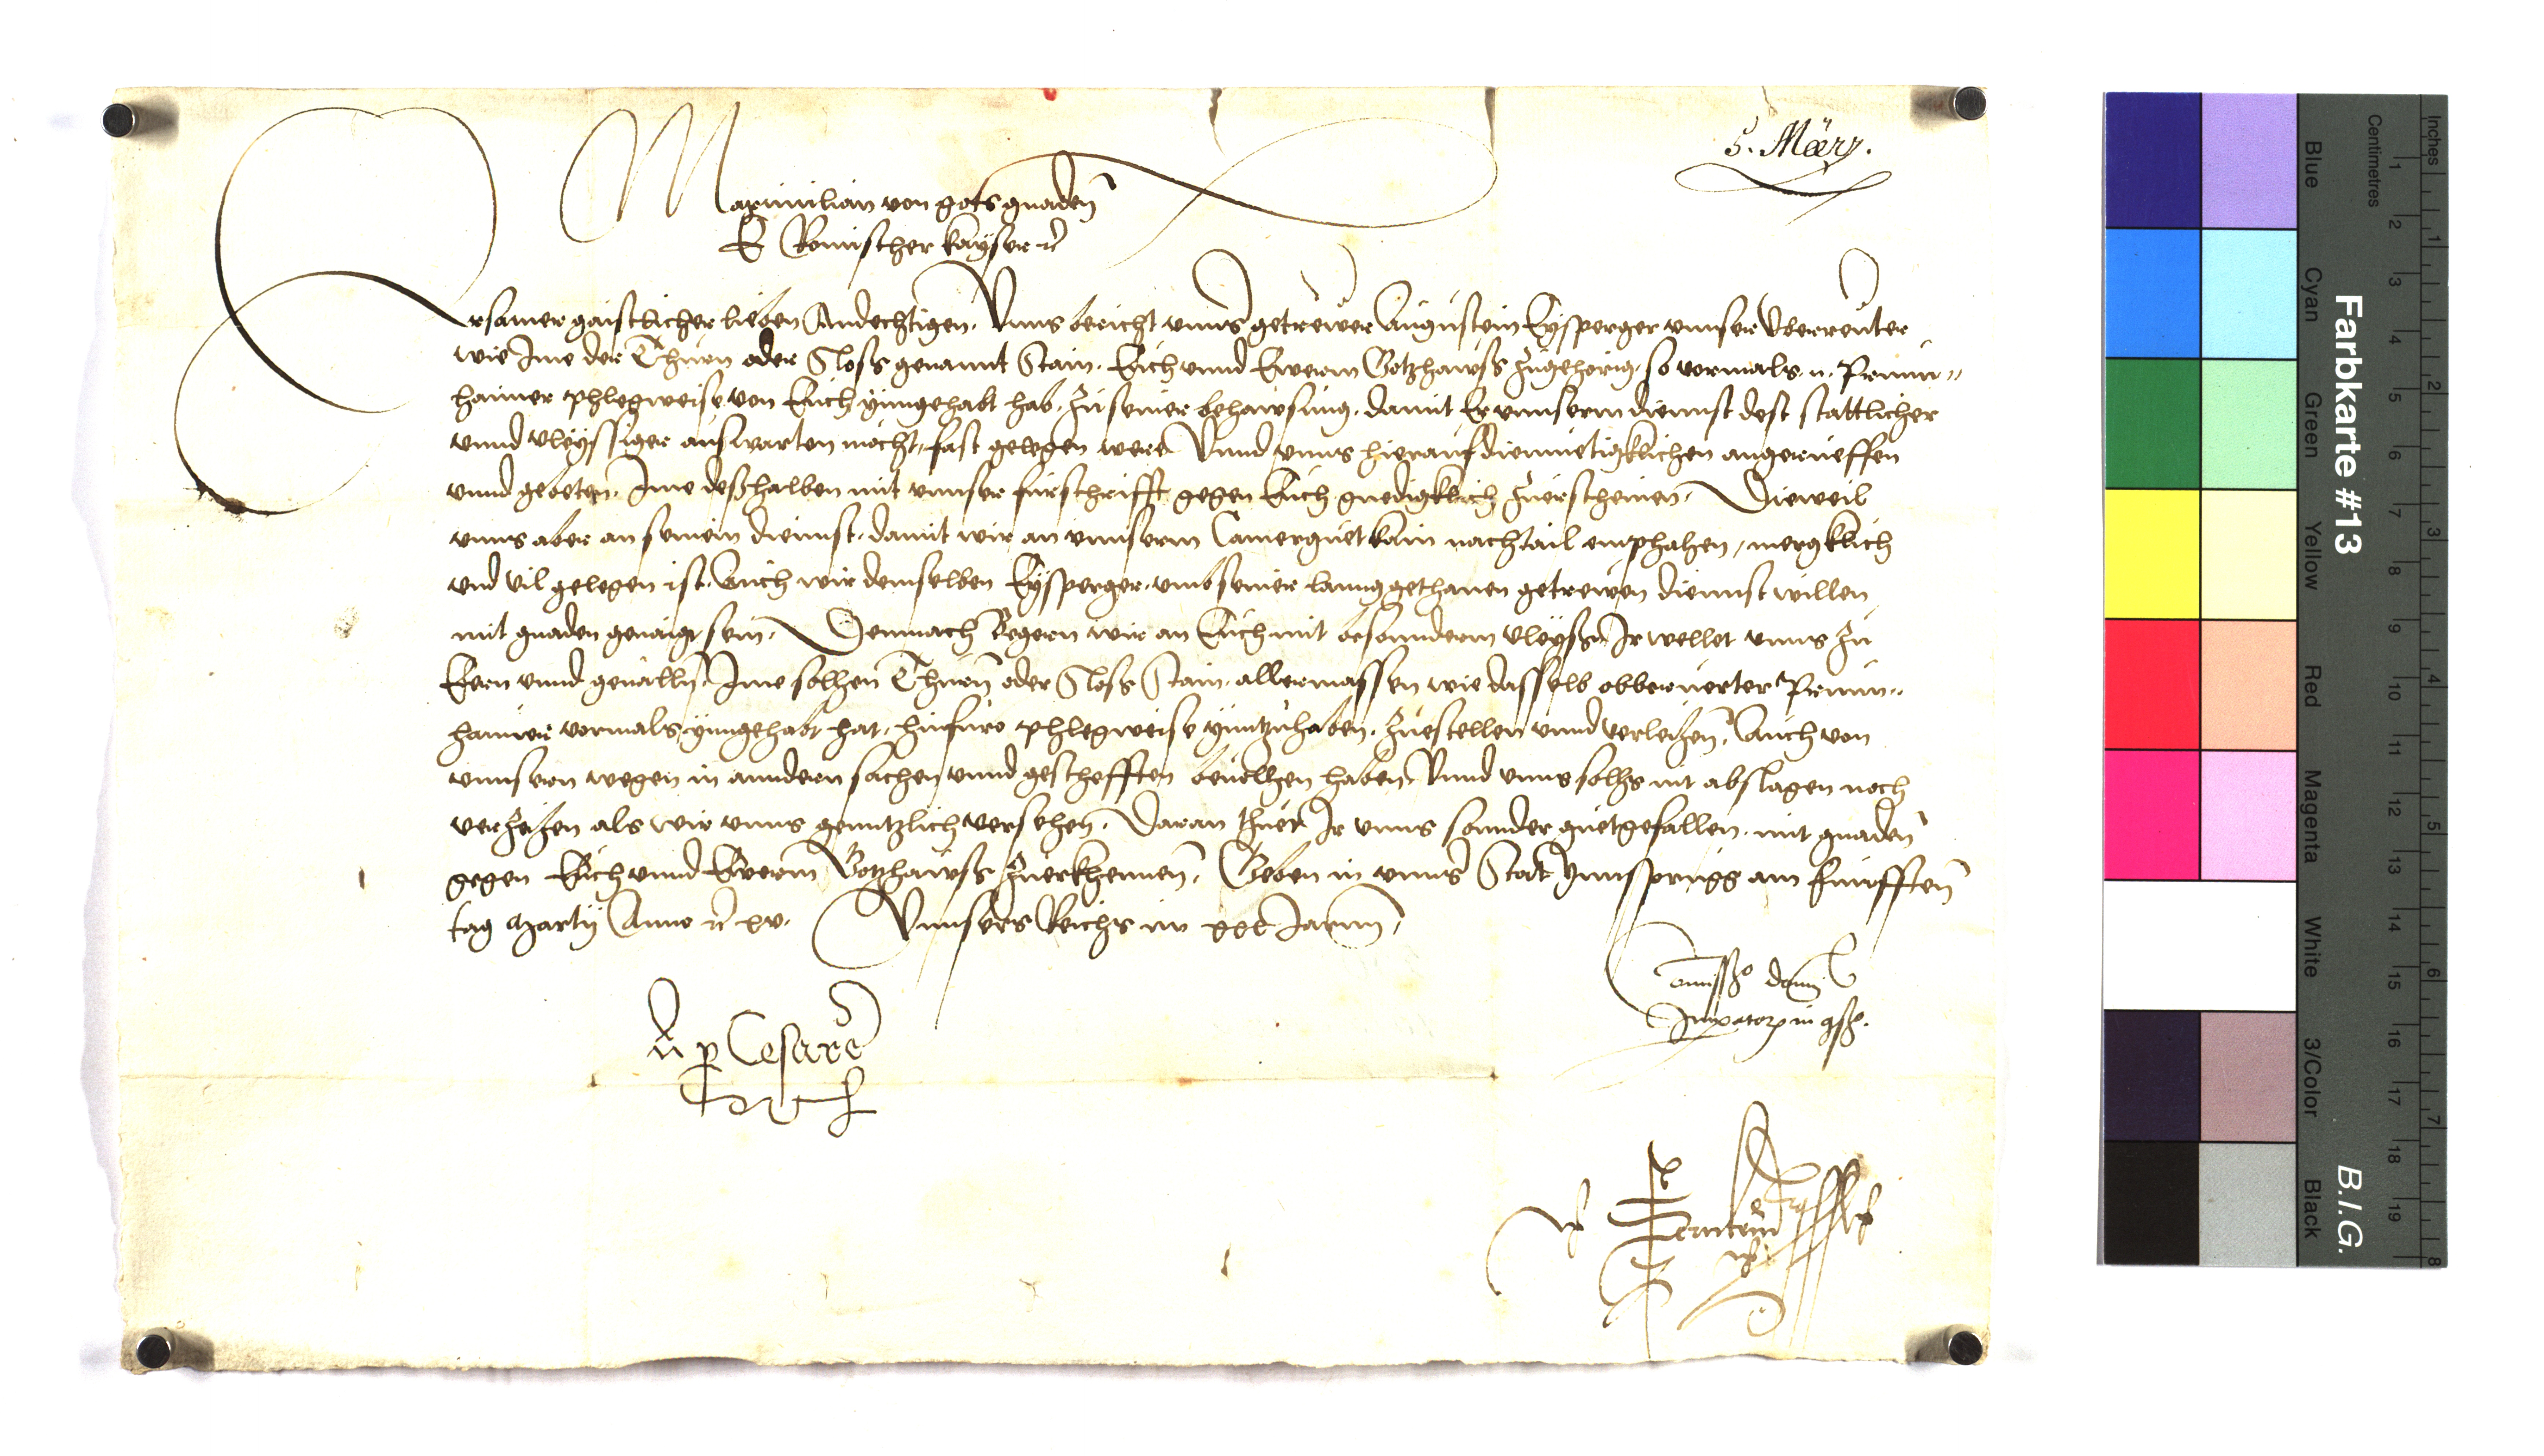 5. März.
Maximilian von gots gnaden
E Romischer kayser rc
Ersamer gaistlicher lieben Andechtigen. Unns bericht unnser getrewer Augustein Eysperger unnser Uberreuter
wie Ime der Thurn oder Sloss genannt Stain. Euch unnd Ewerm Gotzhawss zugehorig, so vormals
haimer phlegweise von Euch ynngehabt hab, zu seiner behawsung, damit Er unnserm diennst dest stattlicher
unnd vleyssiger auswarten mocht, fast gelegen were Unnd unns hierauf diemuetigklichen angerueffen
unnd gebeten. Ime deßhalben mit unnser furschrifft gegen Euch gnedigklich zuerscheinen. Dieweil
unns aber an seinem diennst, damit wir an unnserm Camerguet kain nachtail emphahen, mergklich
und vil gelegen ist. Auch wir demselben Eysperger, umb seiner lanng gethanen getrewen diennst willen
mit gnaden genaigt sein. Demnach Begern wir an Euch mit besonnderm vleyss Ir wellet unns zu
Eern unnd geuallen Ime solhen Thurn oder Sloss Stain, allermassen wie dasselb obberuerter
haimer vormals ynngehabt hat, hinfuro phlegweise ynntzuhaben, zuestellen unnd verleihen, Auch von
unnsern wegen in anndern sachen unnd geschefften beuolhen haben, Unnd unns solhs nit abslagen noch
verzeihen als wir unns genntzlich versehen. Daran thuet Ir unns sonnder guetgefallen. mit gnaden
gegen Euch unnd Ewerm Gotzhawss zuerkhennen. Geben in unnser Stat Ynnsprugg am funfften
tag Marty Anno rc xv. Unnsers Reichs im xxx Jarnn
p Cesarem
Comissio domini
Imperatoris in consilio